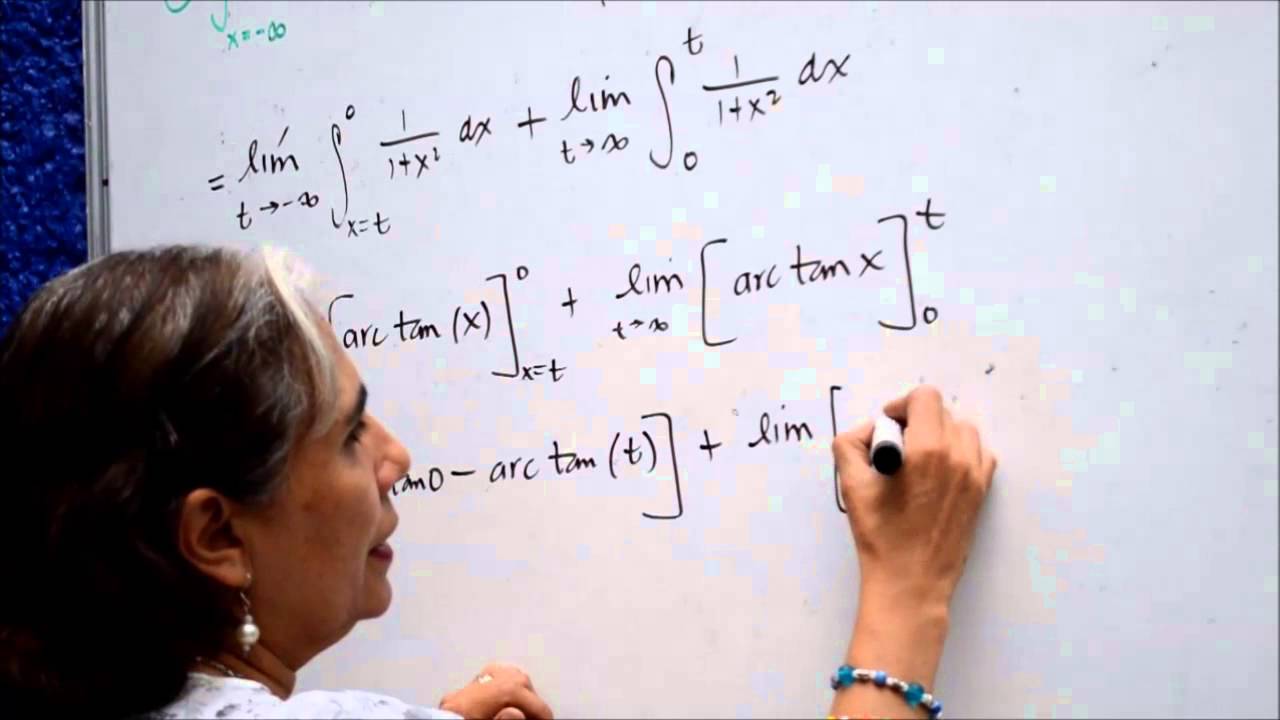 x=-∞
= lím t→-∞ ∫ x=t 0 1/1+x² dx + lim t→∞ ∫ 0 t 1/1+x² dx
[arc tan (x)] x=t 0 + lim t→∞ [arc tan x] 0 t
tan0 - arc tan (t)] + lim [